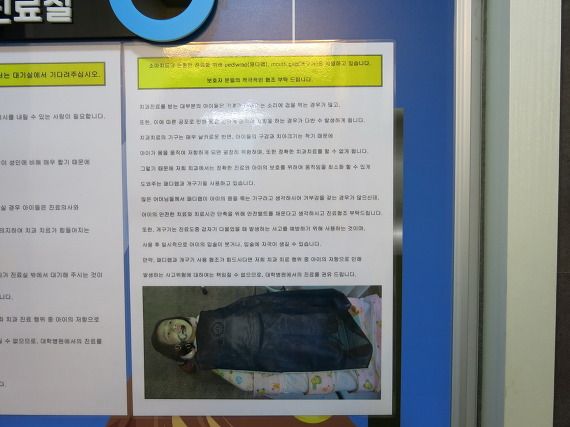 진료실
는 대기실에서 기다려주십시오.
시를 내릴 수 있는 사람이 필요합니다.
이 성인에 비해 매우 짧기 때문에
실 경우 아이들은 진료의사와
의지하여 치과 치료가 힘들어지는
기가 진료실 밖에서 대기해 주시는 것이
니다.
와 치과 진료 행위 중 아이의 저항으로
실 수 없으므로, 대학병원에서의 진료를
다.
소아치료의 안전한 진료를 위해 pediwrap(페디랩), mouth gag(개구기)를 사용하고 있습니다.
보호자 분들의 적극적인 협조 부탁 드립니다.
치과진료를 받는 대부분의 아이들은 소리에 겁을 먹는 경우가 많고,
또한, 이에 따른 공포로 인한 저항을 하는 경우가 다반 수 발생하게 됩니다.
치과치료의 기구는 매우 날카로운 반면, 아이들의 구강과 치아크기는 작기 때문에
아이가 몸을 움직여 저항하게 되면 굉장히 위험하며, 또한 정확한 치과치료를 할 수 없게 됩니다.
그렇기 때문에 저희 치과에서는 정확한 진료와 아이의 보호를 위하여 움직임을 최소화 할 수 있게
도와주는 페디랩과 개구기를 사용하고 있습니다.
많은 어머님들께서 페디랩이 아이의 몸을 묶는 기구라고 생각하시어 거부감을 갖는 경우가 많으신데,
아이의 안전한 치료와 치료시간 단축을 위해 안전벨트를 채운다고 생각하시고 진료협조 부탁드립니다.
또한, 개구기는 진료도중 갑자기 다물었을 때 발생하는 사고를 예방하기 위해 사용하는 것이며,
사용 후 일시적으로 아이의 입술이 붓거나, 입술에 자극이 생길 수 있습니다.
만약, 페디랩과 개구기 사용 협조가 힘드시다면 저희 치과 치료 행위 중 아이의 저항으로 인해
발생하는 사고위험에 대하여는 책임질 수 없으므로, 대학병원에서의 진료를 권유 드립니다.